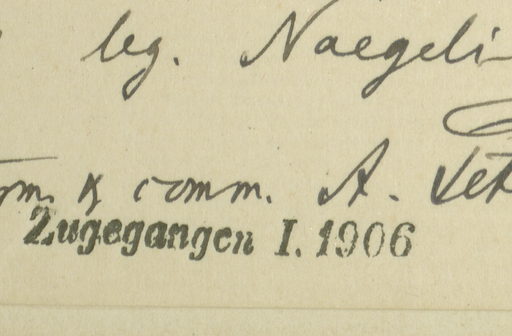 leg. Naegeli
comm. A.
Zugegangen I. 1906